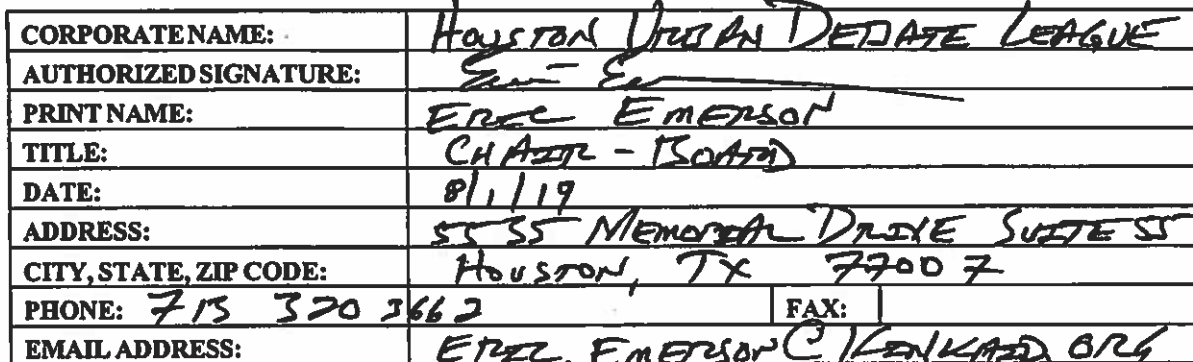 CORPORATE NAME: HOUSTON URBAN DEBATE LEAGUE
AUTHORIZED SIGNATURE:
PRINT NAME: ERIC EMERSON
TITLE: CHAIR - BOARD
DATE: 8/1/19
ADDRESS: 5535 MEMORIAL DRIVE SUITE
CITY, STATE, ZIP CODE: HOUSTON, TX 77007
PHONE: 713 320 3662 FAX:
EMAIL ADDRESS: ERIC.EMERSON@KINKAID.ORG